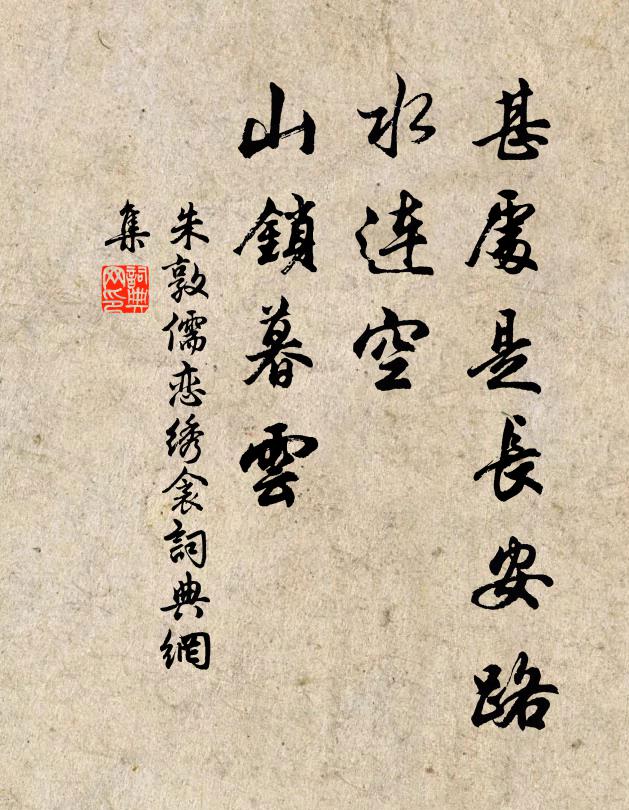 甚處是長安路
水連空
山鎖暮雲
朱敦儒恋绣衾詞典網
集
詞典網印